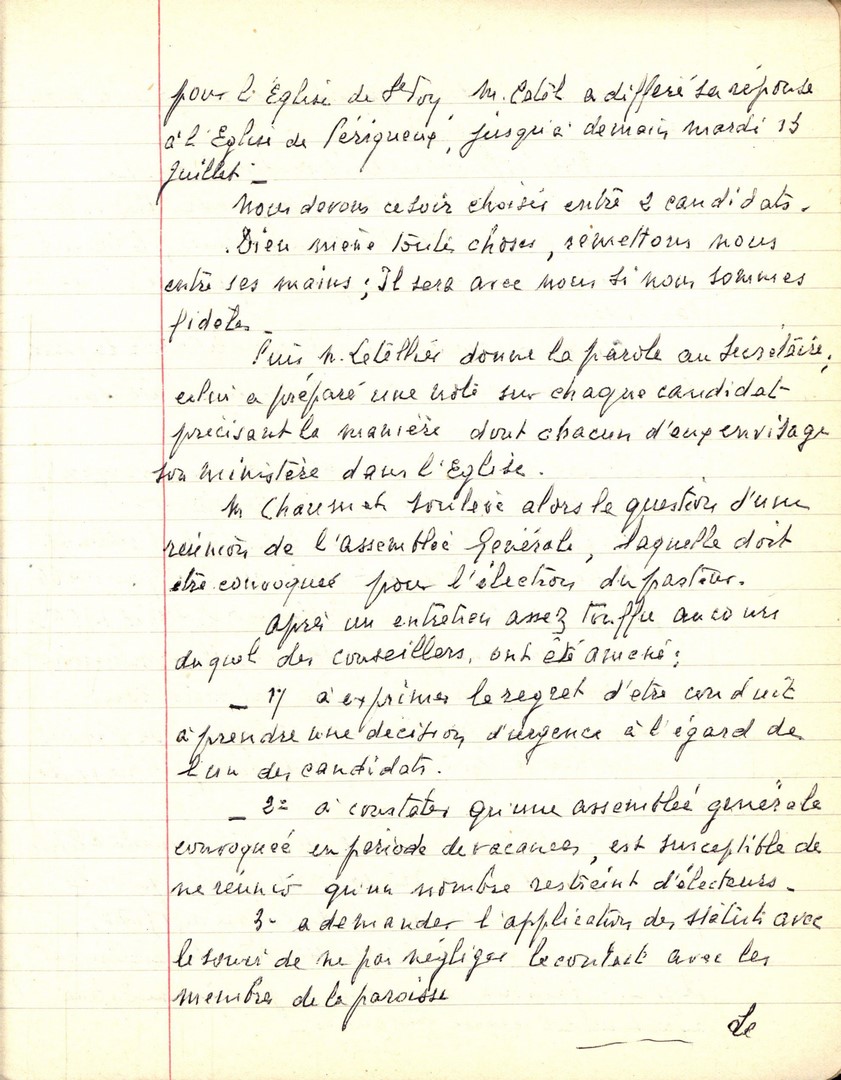 pour l'Eglise de Ste Foy M. Catel a differé sa réponse
à l'Eglise de Périgueux, jusqu'à demain mardi 15
Juillet. _
Nous devons ce soir choisir entre 2 candidats.
Dieu mène toutes choses, remettons nous
entre ses mains ; Il sera avec nous si nous sommes
fidèles _
Puis M. Letellier donne la parole au Secrétaire;
celui a préparé une note sur chaque candidat
précisant la manière dont chacun d'eux envisage
son ministère dans l'Eglise.
M souleve alors le question d'une
réunion de l'assemblée Générale, laquelle doit
etre convoquée pour l'élection du pasteur.
après un entretien assez touffu au cours
duquel des conseillers, ont été amené :
_ 1) à exprimer le regret d'etre conduit
à prendre une décision d'urgence à l'égard de
l'un des candidats.
_ 2= à constater qu'une assemblée générale
convoquée en période de vacances, est susceptible de
ne réunir qu'un nombre restreint d'électeurs. _
3- a demander l'application des statuts avec
le souci de ne pas négliger le contact avec les
membres de la paroisse
Le